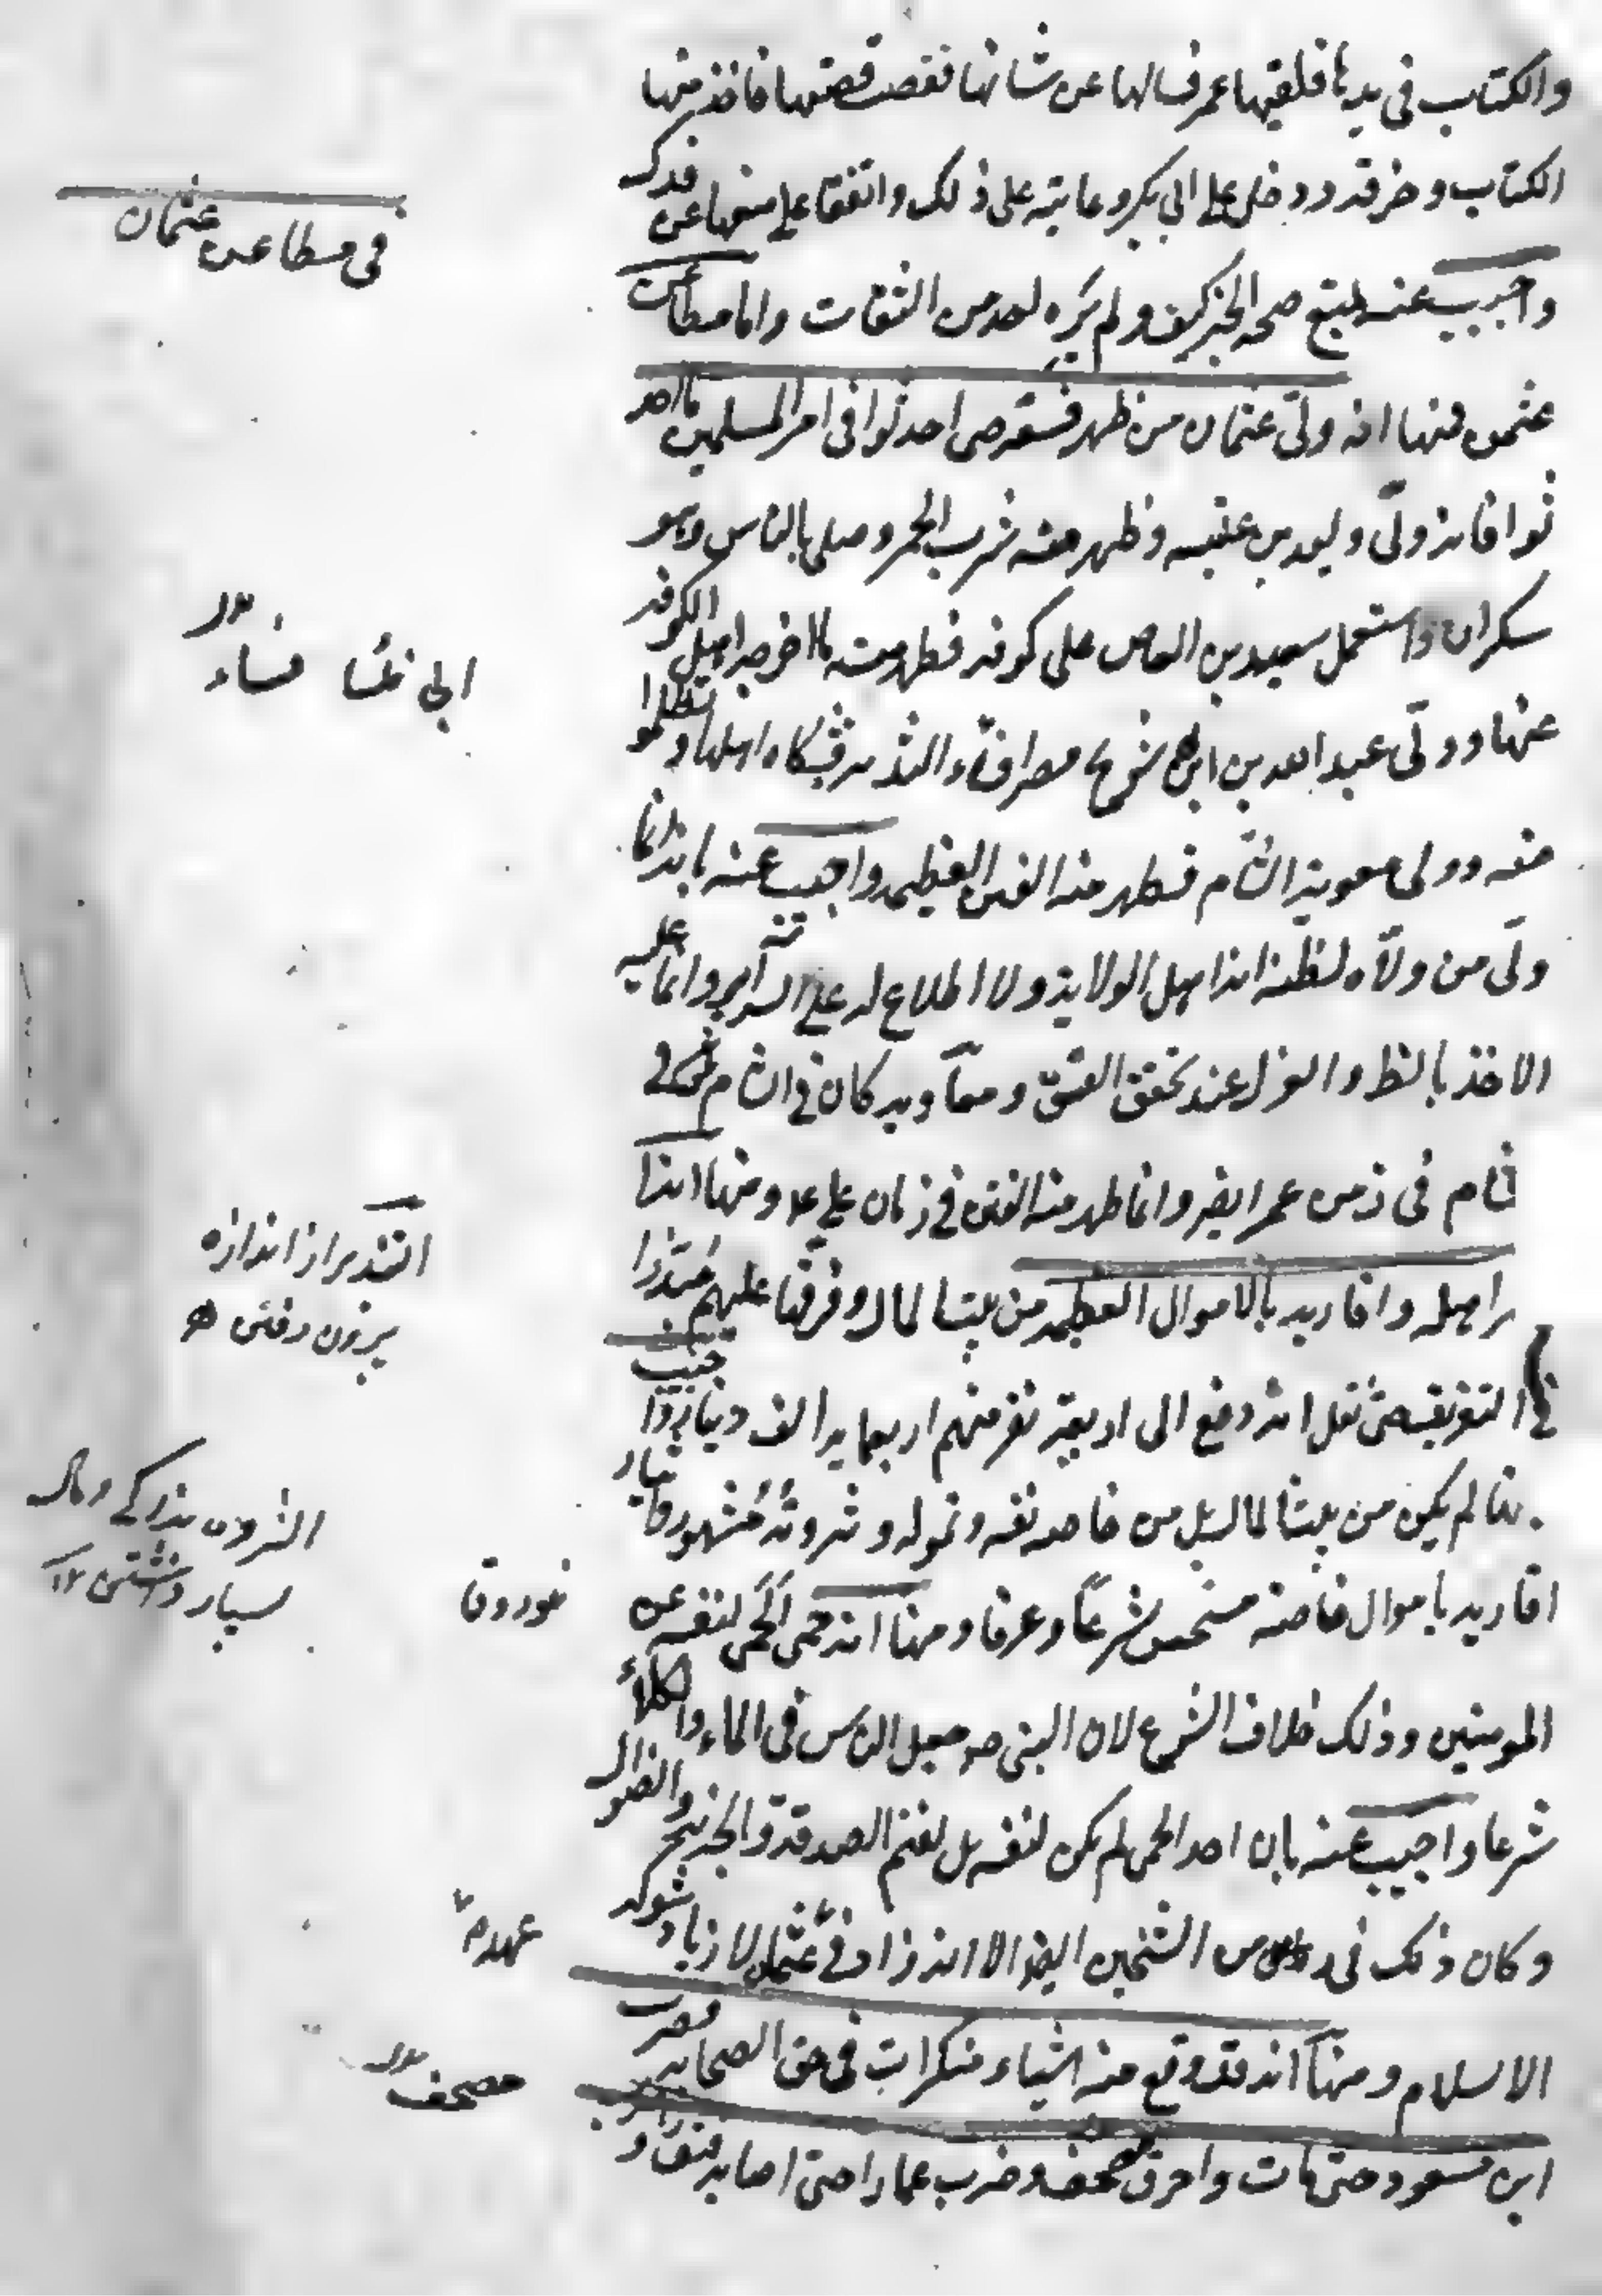 والكتاب في يدها فلقيها عمر فسالها عن شانها فقصت قصتها فاخذ منها
الكتاب وخرقه ودخل على ابي بكر وعاتبه على ذلك واتفقا على منعها عن فدك
واجيب عنه بمنع صحة الخبر كيف ولم يروه احد من الثقات واما مطاعن
عثمن فمنها انه ولى عثمان من ظهر فسقه حتى احدثوا في امر المسلمين ما احد
ثوا فانه ولى وليد بن عقبه وظهر منه شرب الخمر وصلى بالناس وهو
سكران واستعمل سعيد بن العاص على كوفه فظهر منه ما اخرجه اهل الكوفه
عنها وولى عبد الله بن ابي سرح مصر افساء التدبير فشكاه اهلها وتظلموا
منه وولى معوية الشام فظهر منه الفتن العظيمه واجيب عنه بانه انما
ولى من ولاه لظنه انه اهل الولاية ولا اطلاع له على السرآير وانما عليه
الاخذ بالظ والعزل عند تحقق الفسق ومعاويه كان في الشام
شام في زمن عمر ايضا وانما ظهر منه الفتن في زمان علي ع ومنها انه ا
راهله واقاربه بالاموال العظيمه من بيت المال وفرقها عليهم مبذرا
في التفريق حتى نقل انه دفع الى اربعة نفر منهم اربعمايه الف دينار واجيب
بانها لم يكن من بيت المال بل من خاصه نفسه وتموله وثروته مشهور وايثار
اقاربه باموال خاصته مستحسن شرعا وعرفا ومنها انه حمى الحمى لنفسه عن
المومنين وذلك خلاف الشرع لان النبي ص جعل الناس في الماء والكلأ
شرعا واجيب عنه بان اخذ الحمى لم يكن لنفسه بل لغنم الصدقة والجزية والضوال
وكان ذلك في زمن الشيخين ايضا الا انه زاد في عثمان لازدياد شوكه
الاسلام ومنها انه قد وقع منه اشياء منكرات في حق الصحابه فضرب
ابن مسعود حتى مات واحرق مصحفه وضرب عمارا حتى اصابه فتق و
في مطاعن عثمان
فساء
التبذير از اندازه
بيرون رفتن
الثروت
بسيار داشتن ١٢
عهده
مصحف